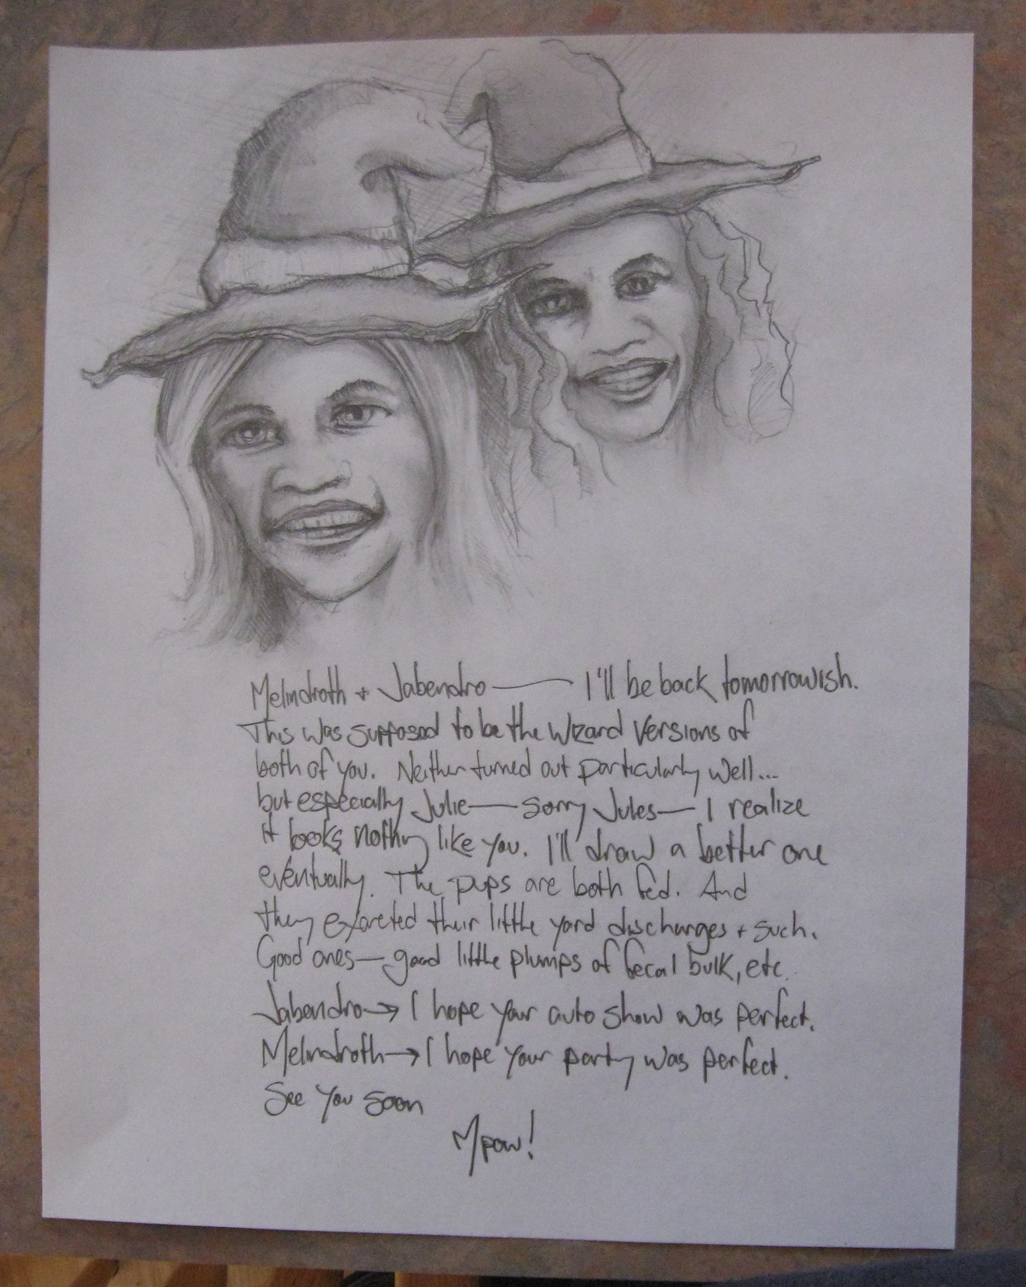 Melindroth + Jabendro — I'll be back tomorrowish.
This was supposed to be the Wizard Versions of
both of you. Neither turned out particularly well...
but especially Julie — sorry Jules — I realize
it looks nothing like you. I'll draw a better one
eventually. The pups are both fed. And
they excreted their little yard discharges + such.
Good ones — good little plumps of fecal bulk, etc.
Jabendro → I hope your auto show was perfect.
Melindroth → I hope your party was perfect.
See you soon
Mpow!